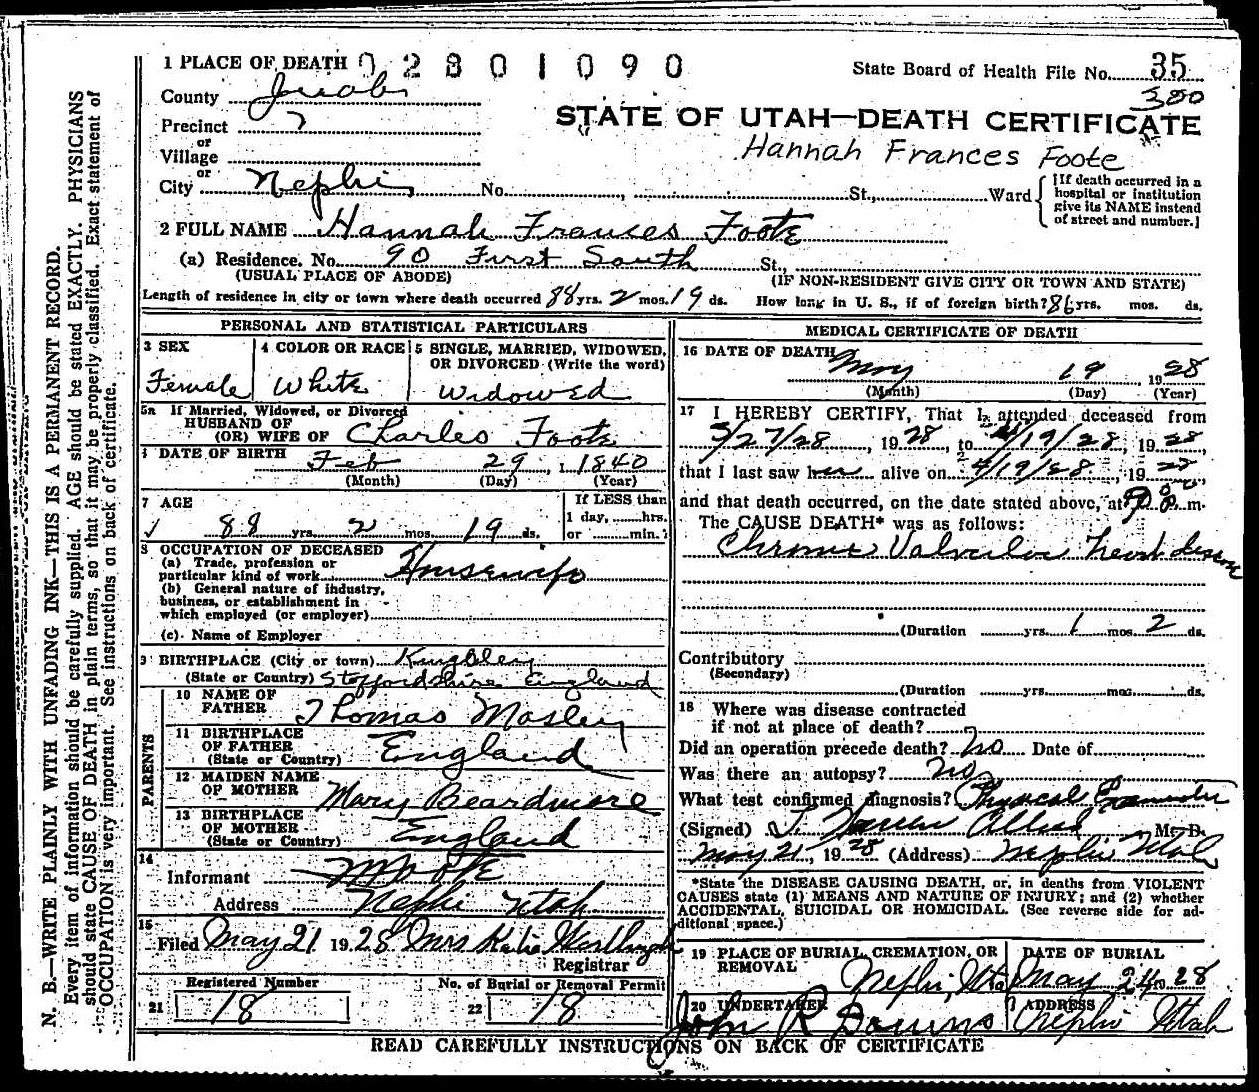 1 PLACE OF DEATH 02801090
State Board of Health File No. 35
County Juab
380
Precinct 7
STATE OF UTAH—DEATH CERTIFICATE
or
Village
Hannah Frances Foote
or
City Nephi No. , St., Ward
[If death occurred in a hospital or institution give its NAME instead of street and number.]
2 FULL NAME Hannah Frances Foote
(a) Residence. No. 90 First South St.,
(USUAL PLACE OF ABODE) (IF NON-RESIDENT GIVE CITY OR TOWN AND STATE)
Length of residence in city or town where death occurred 88 yrs. 2 mos. 19 ds. How long in U. S., if of foreign birth? 86 yrs. mos. ds.
PERSONAL AND STATISTICAL PARTICULARS
3 SEX
Female
4 COLOR OR RACE
White
5 SINGLE, MARRIED, WIDOWED,
OR DIVORCED (Write the word)
Widowed
5a If Married, Widowed, or Divorced
HUSBAND OF
(OR) WIFE OF Charles Foote
DATE OF BIRTH Feb 29, 1840
(Month) (Day) (Year)
7 AGE
88 yrs. 2 mos. 19 ds.
If LESS than
1 day, hrs.
or min.?
8 OCCUPATION OF DECEASED
(a) Trade, profession or
particular kind of work Housewife
(b) General nature of industry,
business, or establishment in
which employed (or employer)
(c) Name of Employer
9 BIRTHPLACE (City or town)
(State or Country) Staffordshire England
PARENTS
10 NAME OF
FATHER Thomas Mosley
11 BIRTHPLACE
OF FATHER
(State or Country) England
12 MAIDEN NAME
OF MOTHER Mary Beardmore
13 BIRTHPLACE
OF MOTHER
(State or Country) England
14
Informant
Address Nephi Utah
15
Filed May 21 1928 Mrs Katie
Registrar
Registered Number
21 18
No. of Burial or Removal Permit
22 18
MEDICAL CERTIFICATE OF DEATH
16 DATE OF DEATH
May 19, 1928
(Month) (Day) (Year)
17 I HEREBY CERTIFY, That I attended deceased from
3/27/28, 1928, to 4/19/28, 1928,
that I last saw her alive on 4/19/28, 1928,
and that death occurred, on the date stated above, at 9 P. m.
The CAUSE DEATH* was as follows:
Chronic Valvular heart disease
(Duration yrs. 1 mos. 2 ds.
Contributory
(Secondary)
(Duration yrs. mos. ds.
18 Where was disease contracted
if not at place of death?
Did an operation precede death? No Date of
Was there an autopsy? No
What test confirmed diagnosis? Physical Examination
(Signed) J. Allred M. D.
May 21, 1928 (Address) Nephi Utah
*State the DISEASE CAUSING DEATH, or, in deaths from VIOLENT
CAUSES state (1) MEANS AND NATURE OF INJURY; and (2) whether
ACCIDENTAL, SUICIDAL OR HOMICIDAL. (See reverse side for ad-
ditional space.)
19 PLACE OF BURIAL, CREMATION, OR
REMOVAL
Nephi, Utah
DATE OF BURIAL
May 24 1928
20 UNDERTAKER
John R Downs
ADDRESS
Nephi Utah
READ CAREFULLY INSTRUCTIONS ON BACK OF CERTIFICATE
N. B.—WRITE PLAINLY WITH UNFADING INK—THIS IS A PERMANENT RECORD.
Every item of information should be carefully supplied. AGE should be stated EXACTLY. PHYSICIANS
should state CAUSE OF DEATH in plain terms, so that it may be properly classified. Exact statement of
OCCUPATION is very important. See instructions on back of certificate.